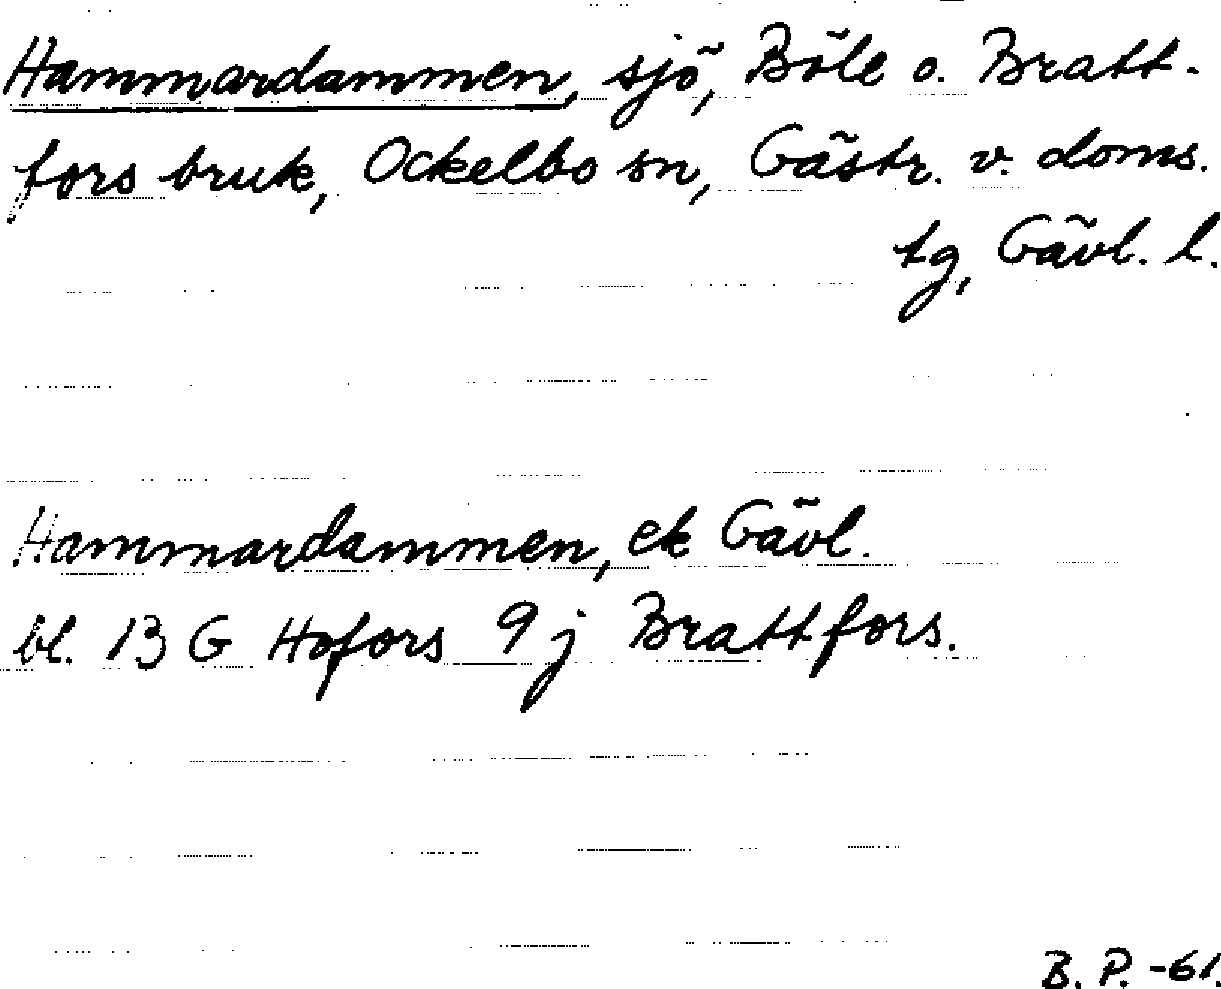 Hammardammen, sjö, Böle o. Bratt-
fors bruk, Ockelbo sn, Gästr. v. doms.
tg, Gävl. l.
Hammardammen, ek Gävl.
bl. 13 G Hofors 9 j Brattfors.
B. P. -61.